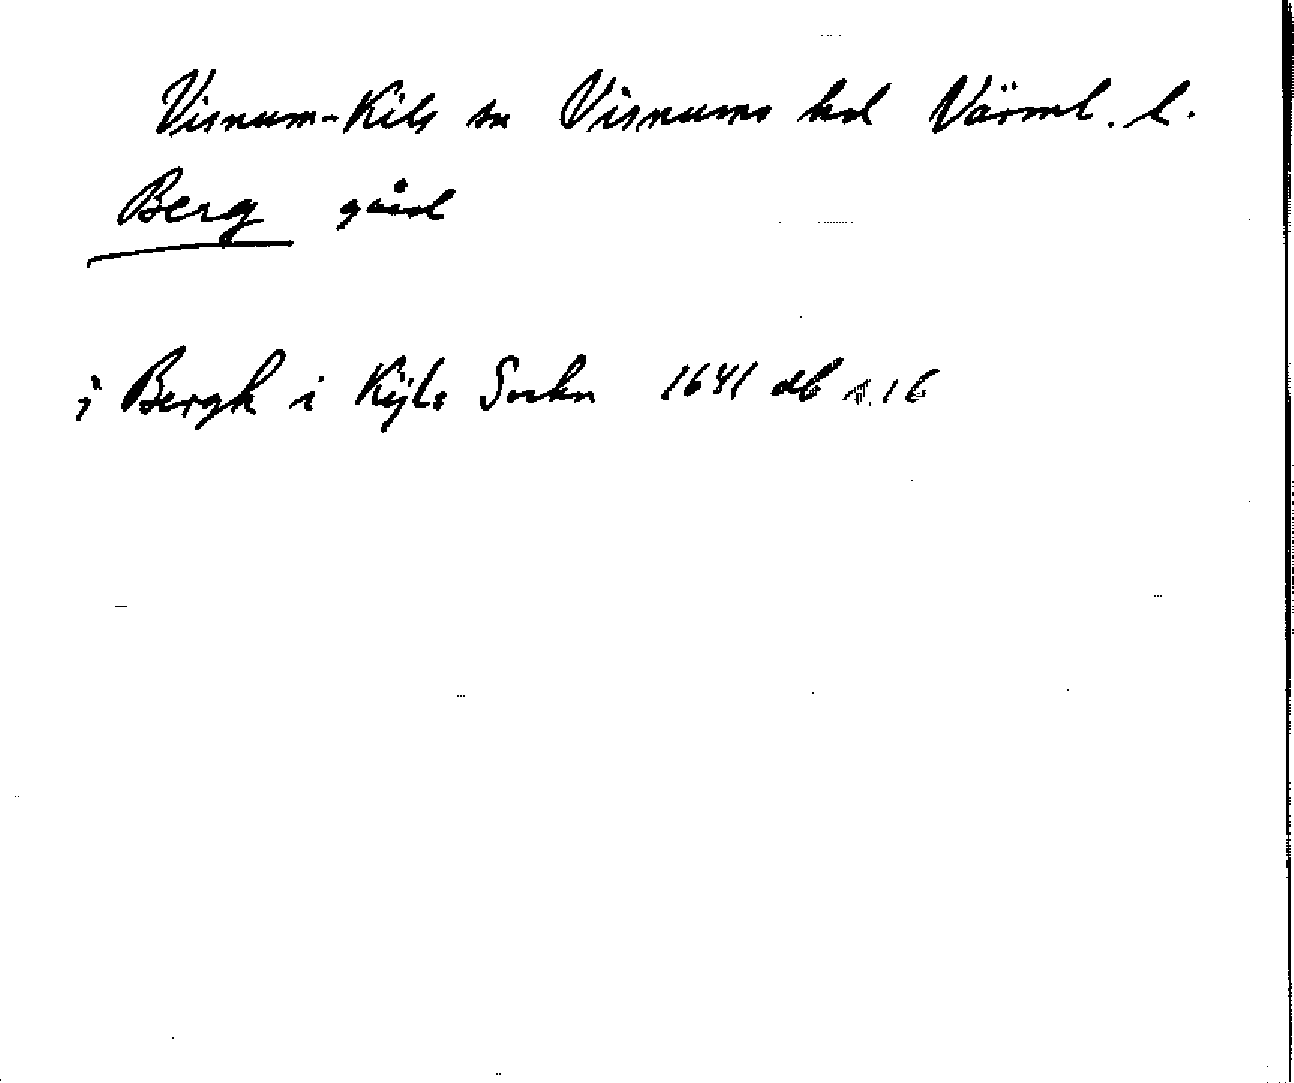 Visnum-Kils sn Visnums hd Värml. l.
Berg gård
i Bergh i Kijls Sockn 1641 db s. 16